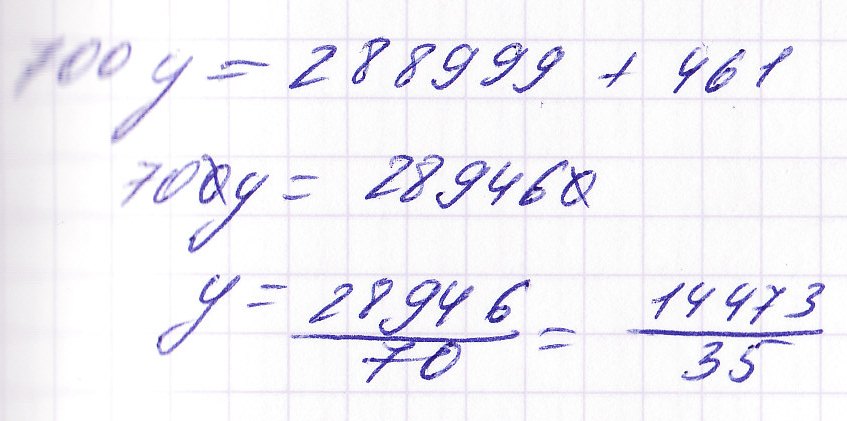 700y = 288999 + 461
700y = 289460
y = 28946/70 = 14473/35